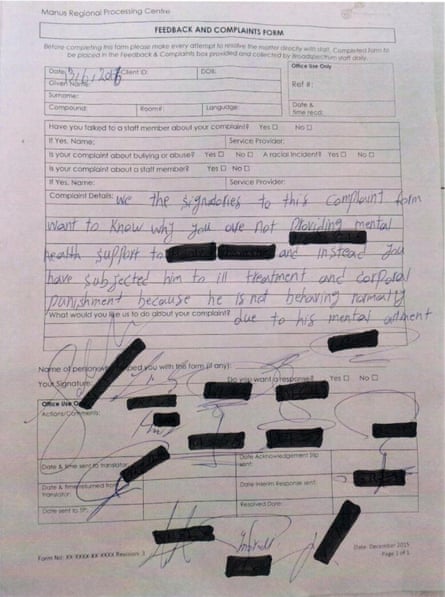 Manus Regional Processing Centre
FEEDBACK AND COMPLAINTS FORM
Before completing this form please make every attempt to resolve the matter directly with staff. Completed form to
be placed in the Feedback & Complaints box provided and collected by Broadspectrum staff daily.
Date: Client ID: DOB: Office Use Only
Given Name: Ref #:
Surname:
Compound: Room#: Language: Date &
time recd:
Have you talked to a staff member about your complaint? Yes ☐ No ☐
If Yes, Name: Service Provider:
Is your complaint about bullying or abuse? Yes ☐ No ☐ A racial incident? Yes ☐ No ☐
Is your complaint about a staff member? Yes ☐ No ☐
If Yes, Name: Service Provider:
Complaint Details: we the signatories to this complaint form
want to know why you are not providing mental
health support to and instead you
have subjected him to ill treatment and corporal
punishment because he is not behaving normally
What would you like us to do about your complaint? due to his mental ailment
Name of person who helped you with this form (if any):
Your Signature: Do you want a response? Yes ☐ No ☐
Office Use Only
Actions/Comments:
Date & time sent to translator: Date Acknowledgement Slip
sent:
Date & time returned from
translator: Date Interim Response sent:
Date sent to SP: Resolved Date:
Form No: XX-XXXX-XX-XXXX Revision: 3 Date: December 2015
Page 1 of 1